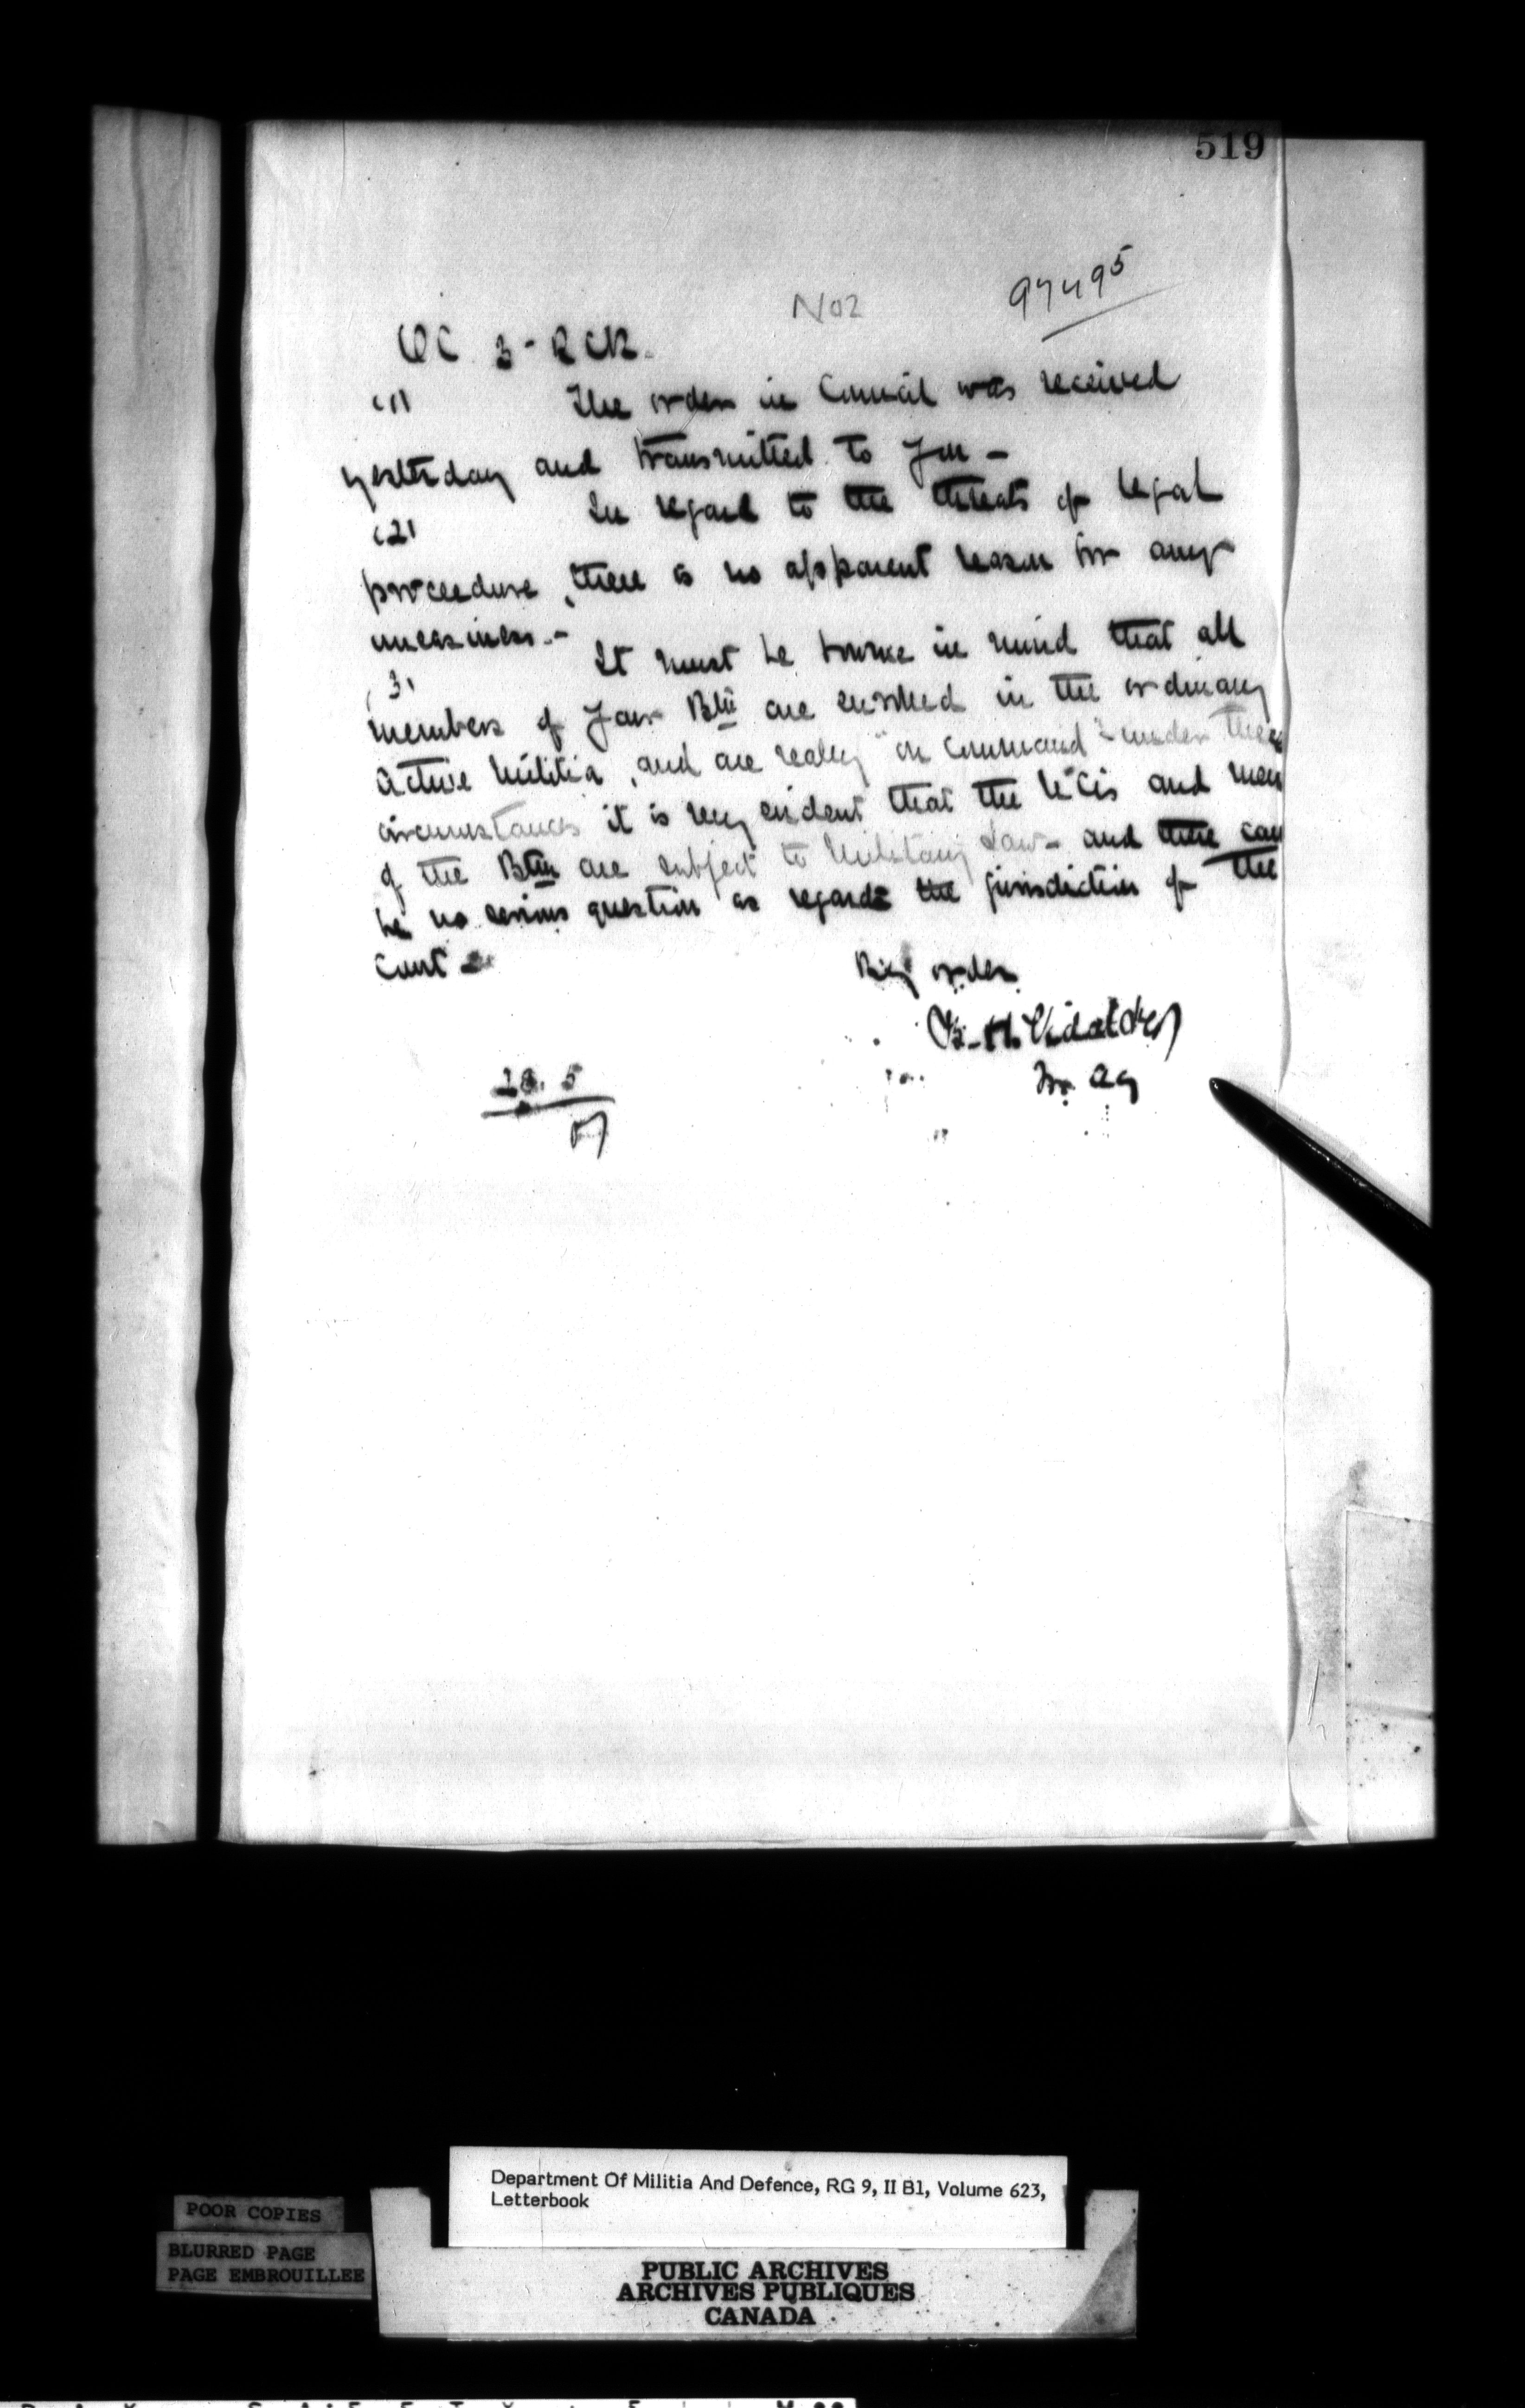 519
No 2
97495
OC 3-RCR.
(1) The order in Council was received
yesterday and transmitted to you -
(2) In regard to the threats of legal
proceedure, there is no apparent reason for any
uneasiness. -
(3) It must be borne in mind that all
members of your Btn are enrolled in the ordinary
Active Militia, and are really "on Command" - under these
circumstances it is very evident that the and men
of the Btn are subject to Military Law - and there can
be no serious question as regards the jurisdiction of the
Court
By order
B. H. Vidal
for AG
28. 5
Department Of Militia And Defence, RG 9, II B1, Volume 623,
Letterbook
POOR COPIES
BLURRED PAGE
PAGE EMBROUILLEE
PUBLIC ARCHIVES
ARCHIVES PUBLIQUES
CANADA